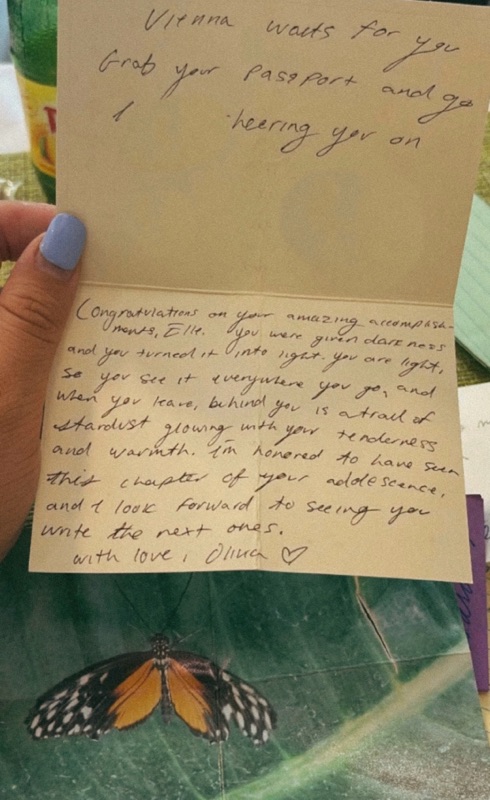 Vienna waits for you
Grab your passport and go
I heering you on
Congratulations on your amazing accomplish-
ments, Elle. You were given darkness
and you turned it into light. you are light,
so you see it everywhere you go, and
when you leave, behind you is a trail of
stardust glowing with your tenderness
and warmth. I'm honored to have seen
this chapter of your adolescence,
and I look forward to seeing you
write the next ones.
with love, Olivia ♡